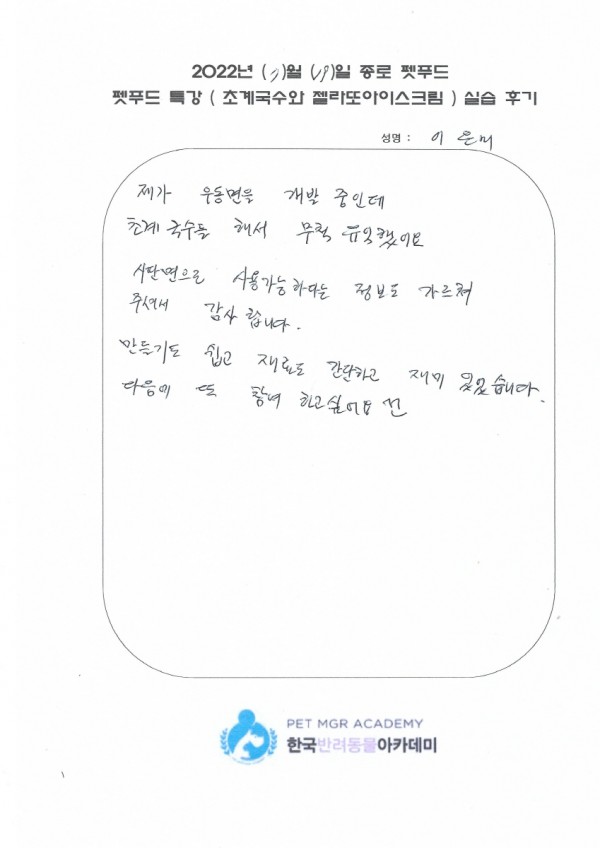 2022년 (7)월 (19)일 종로 펫푸드
펫푸드 특강 ( 초계국수와 젤라또아이스크림 ) 실습 후기
성명 : 이 은미
제가 우동면을 개발 중인데
초계 국수를 해서 무척 유익했어요
사단면으로 사용가능하다는 정보도 가르쳐
주셔서 감사 합니다.
만들기도 쉽고 재료도 간단하고 재미 있었습니다.
다음에 또 참여 하고싶어요
PET MGR ACADEMY
한국반려동물아카데미